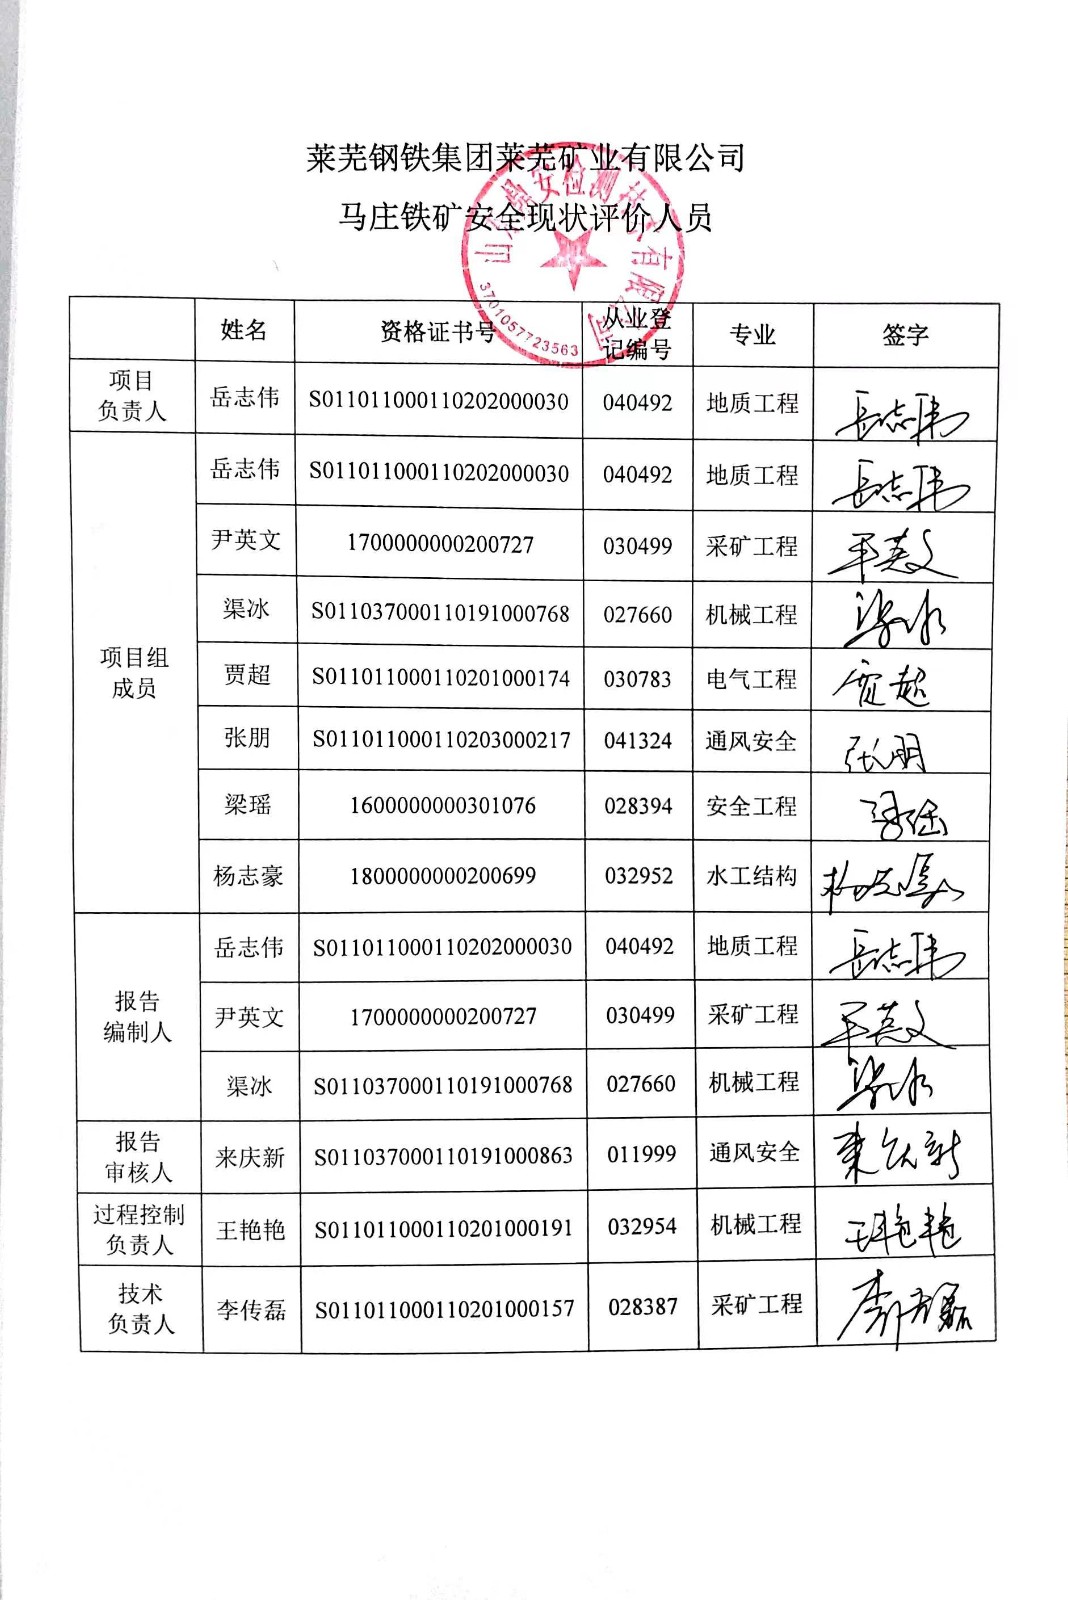 莱芜钢铁集团莱芜矿业有限公司
马庄铁矿安全现状评价人员
山东鼎安检测技术有限公司
3701057723563
姓名 资格证书号 从业登记编号 专业 签字
项目负责人 岳志伟 S011011000110202000030 040492 地质工程 岳志伟
项目组成员 岳志伟 S011011000110202000030 040492 地质工程 岳志伟
尹英文 1700000000200727 030499 采矿工程 尹英文
渠冰 S011037000110191000768 027660 机械工程 渠冰
贾超 S011011000110201000174 030783 电气工程 贾超
张朋 S011011000110203000217 041324 通风安全 张朋
梁瑶 1600000000301076 028394 安全工程 梁瑶
杨志豪 1800000000200699 032952 水工结构 杨志豪
报告编制人 岳志伟 S011011000110202000030 040492 地质工程 岳志伟
尹英文 1700000000200727 030499 采矿工程 尹英文
渠冰 S011037000110191000768 027660 机械工程 渠冰
报告审核人 来庆新 S011037000110191000863 011999 通风安全 来庆新
过程控制负责人 王艳艳 S011011000110201000191 032954 机械工程 王艳艳
技术负责人 李传磊 S011011000110201000157 028387 采矿工程 李传磊